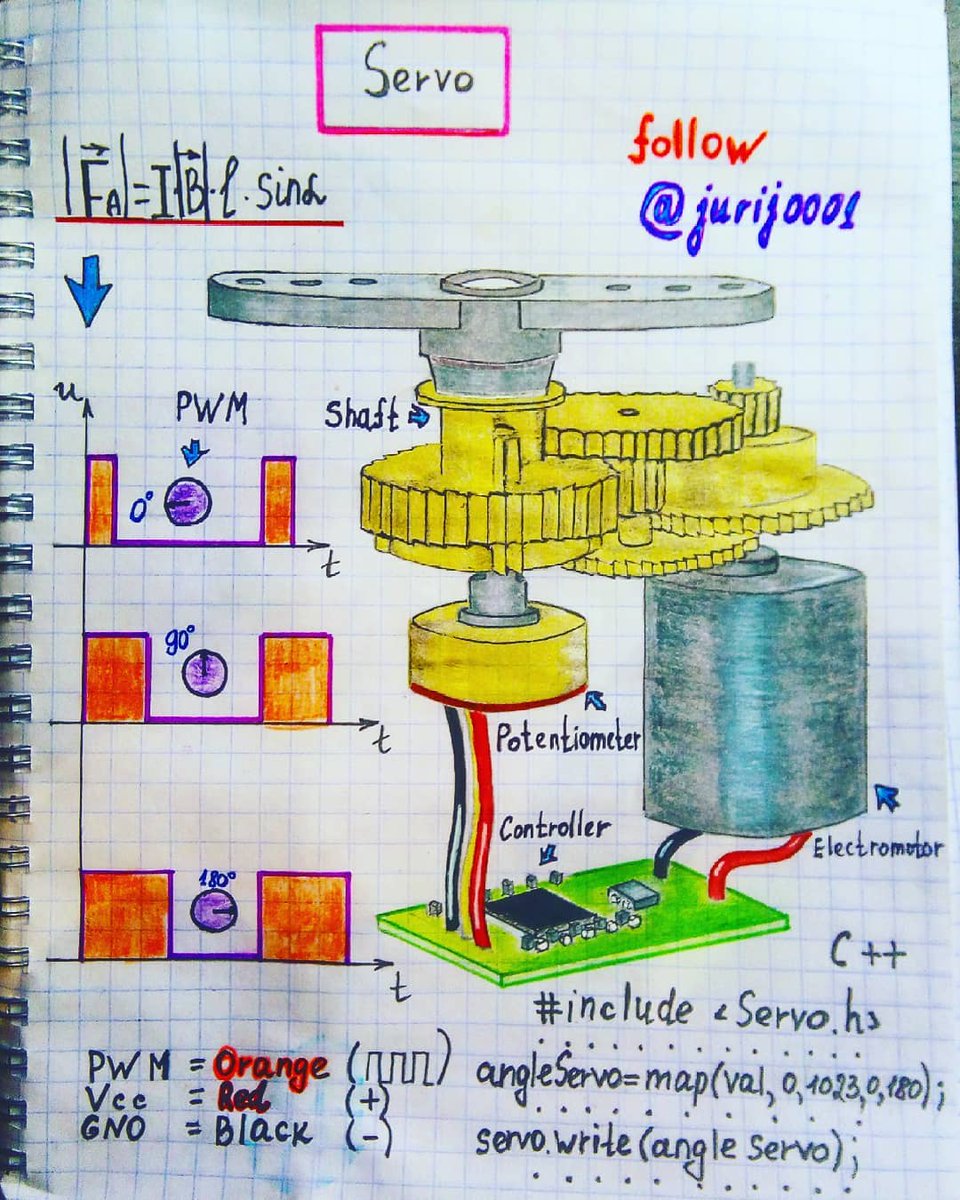 Servo
follow
@jurij0001
|F⃗A| = I·|B⃗|·l·sinα
u
PWM
Shaft
0°
t
90°
t
Potentiometer
Controller
Electromotor
180°
t
C++
#include <Servo.h>
. . . . . . . . . . . .
angleServo=map(val, 0,1023,0,180);
. . . . . . . . . . . .
servo.write(angleServo);
. . . . . . . . . . . .
PWM = Orange
Vcc = Red (+)
GNO = Black (-)